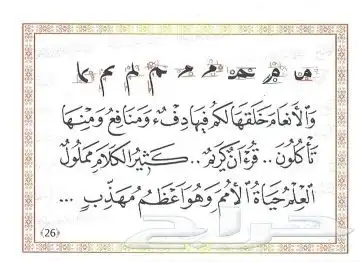 وَالأَنعَامَ خَلَقَهَا لَكُم فِيهَا دِفءٌ وَمَنَافِعُ وَمِنْهَا
تَأكُلُونَ .. قُرآنٌ كَرِيمٌ .. كَثِيرُ الكَلَامِ مَملُولٌ
العِلْمُ حَيَاةُ الأُمَمِ وَهُوَ أَعظَمُ مُهَذِّبٍ ...
حراج
(26)